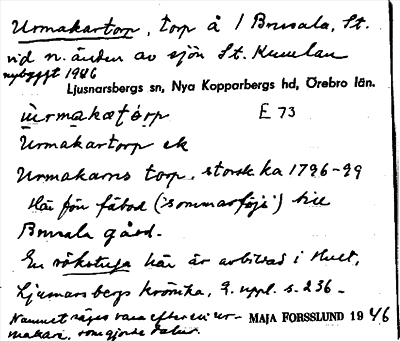 Urmakartorp, torp å 1 Brusala, St.
vid n. änden av sjön St. Kumlan
nybyggt 1946
Ljusnarsbergs sn, Nya Kopparbergs hd, Örebro län.
ùrmakatórp E 73
Urmakartorp ek
Urmakarns torp, storsk ka 1796-99
Här förr fäbod ("sommarföje") till
Brusala gård.
En rökstuga här är avbildad i Hult,
Ljusnarsbergs krönika, 2. uppl. s. 236-
Namnet säges vara efter en ur-
makare, som gjorde
MAJA FORSSLUND 1946